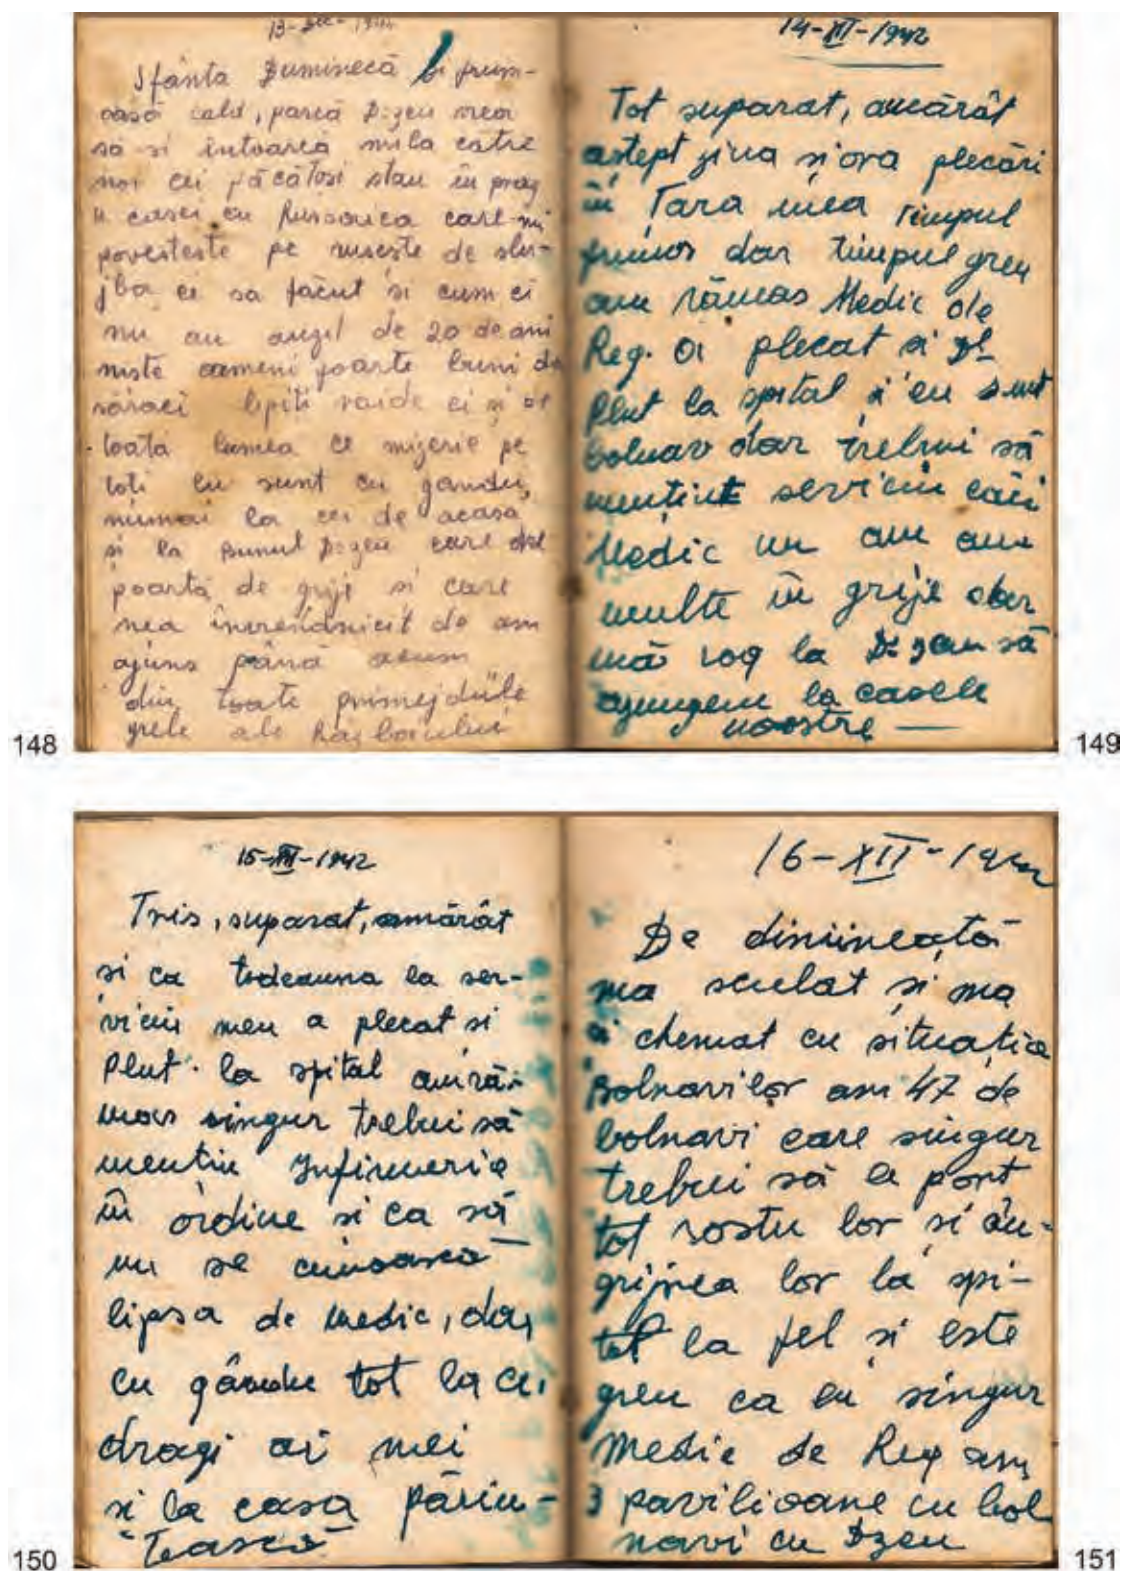 13-Dec-1942
Sfânta Duminecă și frum-
oasă cald, parcă D-zeu vrea
să si intoarcă mila către
noi cei păcătosi stau în prag
u casei cu Rusoaica care-mi
povesteste pe ruseste de slu-
jba ce sa făcut si cum ei
nu au auzit de 20 de ani
niste oameni foarte buni da
săraci lipiti vaide ei și de
toată lumea ce mizerie pe
toti eu sunt cu gandu
numai la cei de acasă
si la Bunul D-zeu care
poartă de grije si care
nea învrednicit de am
ajuns până acum
din toate primejdiile
grele ale Războiului
148
14-XII-1942
Tot suparat, amărât
astept ziua si ora plecări
în Tara mea timpul
frumos dar timpul greu
am rămas Medic de
Reg. Oi plecat si Dl
Plut la spital si eu sunt
bolnav dar trebui să
mentin serviciu căci
Medic nu am am
multe în grije dar
mă rog la D-zeu să
ajungem la casele
noastre
149
15-XII-1942
Tris, suparat, amărât
si ca todeauna la ser-
viciu meu a plecat si
Plut. la spital am ră-
mas singur trebui să
mentin Infirmeria
în ordine si ca să
nu se cunoască
lipsa de medic, dar
cu gându tot la cei
dragi ai mei
si la casa părin-
tească
150
16-XII-1942
De dimineată
ma sculat si ma
si chemat cu situatia
Bolnavilor am 47 de
bolnavi care singur
trebui să le port
tot rostu lor si în-
grijirea lor la spi-
tal la fel si este
greu ca eu singur
Medic de Reg am
3 pavilioane cu bol
navi cu Dzeu
151